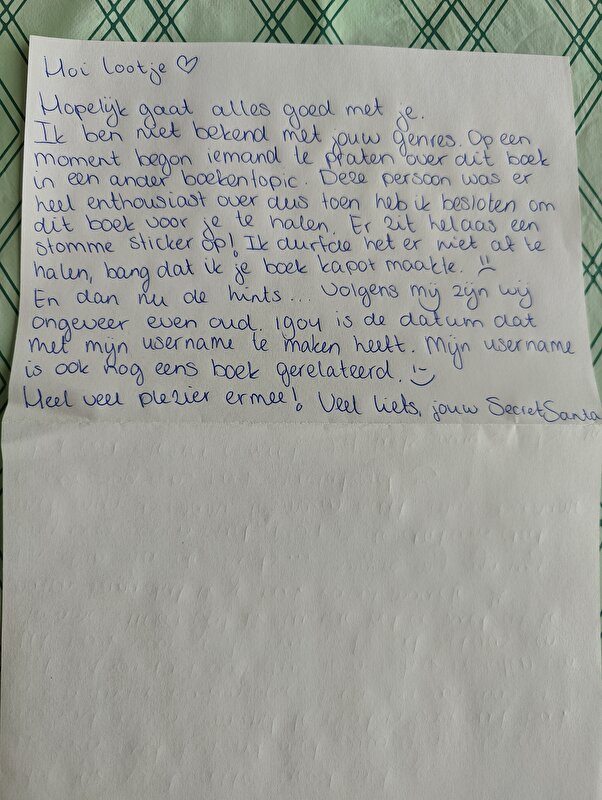 Hoi lootje ♡
Hopelijk gaat alles goed met je.
Ik ben niet bekend met jouw genres. Op een
moment begon iemand te praten over dit boek
in een ander boekentopic. Deze persoon was er
heel enthousiast over dus toen heb ik besloten om
dit boek voor je te halen. Er zit helaas een
stomme sticker op! Ik durfde het er niet af te
halen, bang dat ik je boek kapot maakte. :(
En dan nu de hints... Volgens mij zijn wij
ongeveer even oud. 1904 is de datum dat
met mijn username te maken heeft. Mijn username
is ook nog eens boek gerelateerd. :)
Heel veel plezier ermee! Veel liefs, jouw SecretSanta